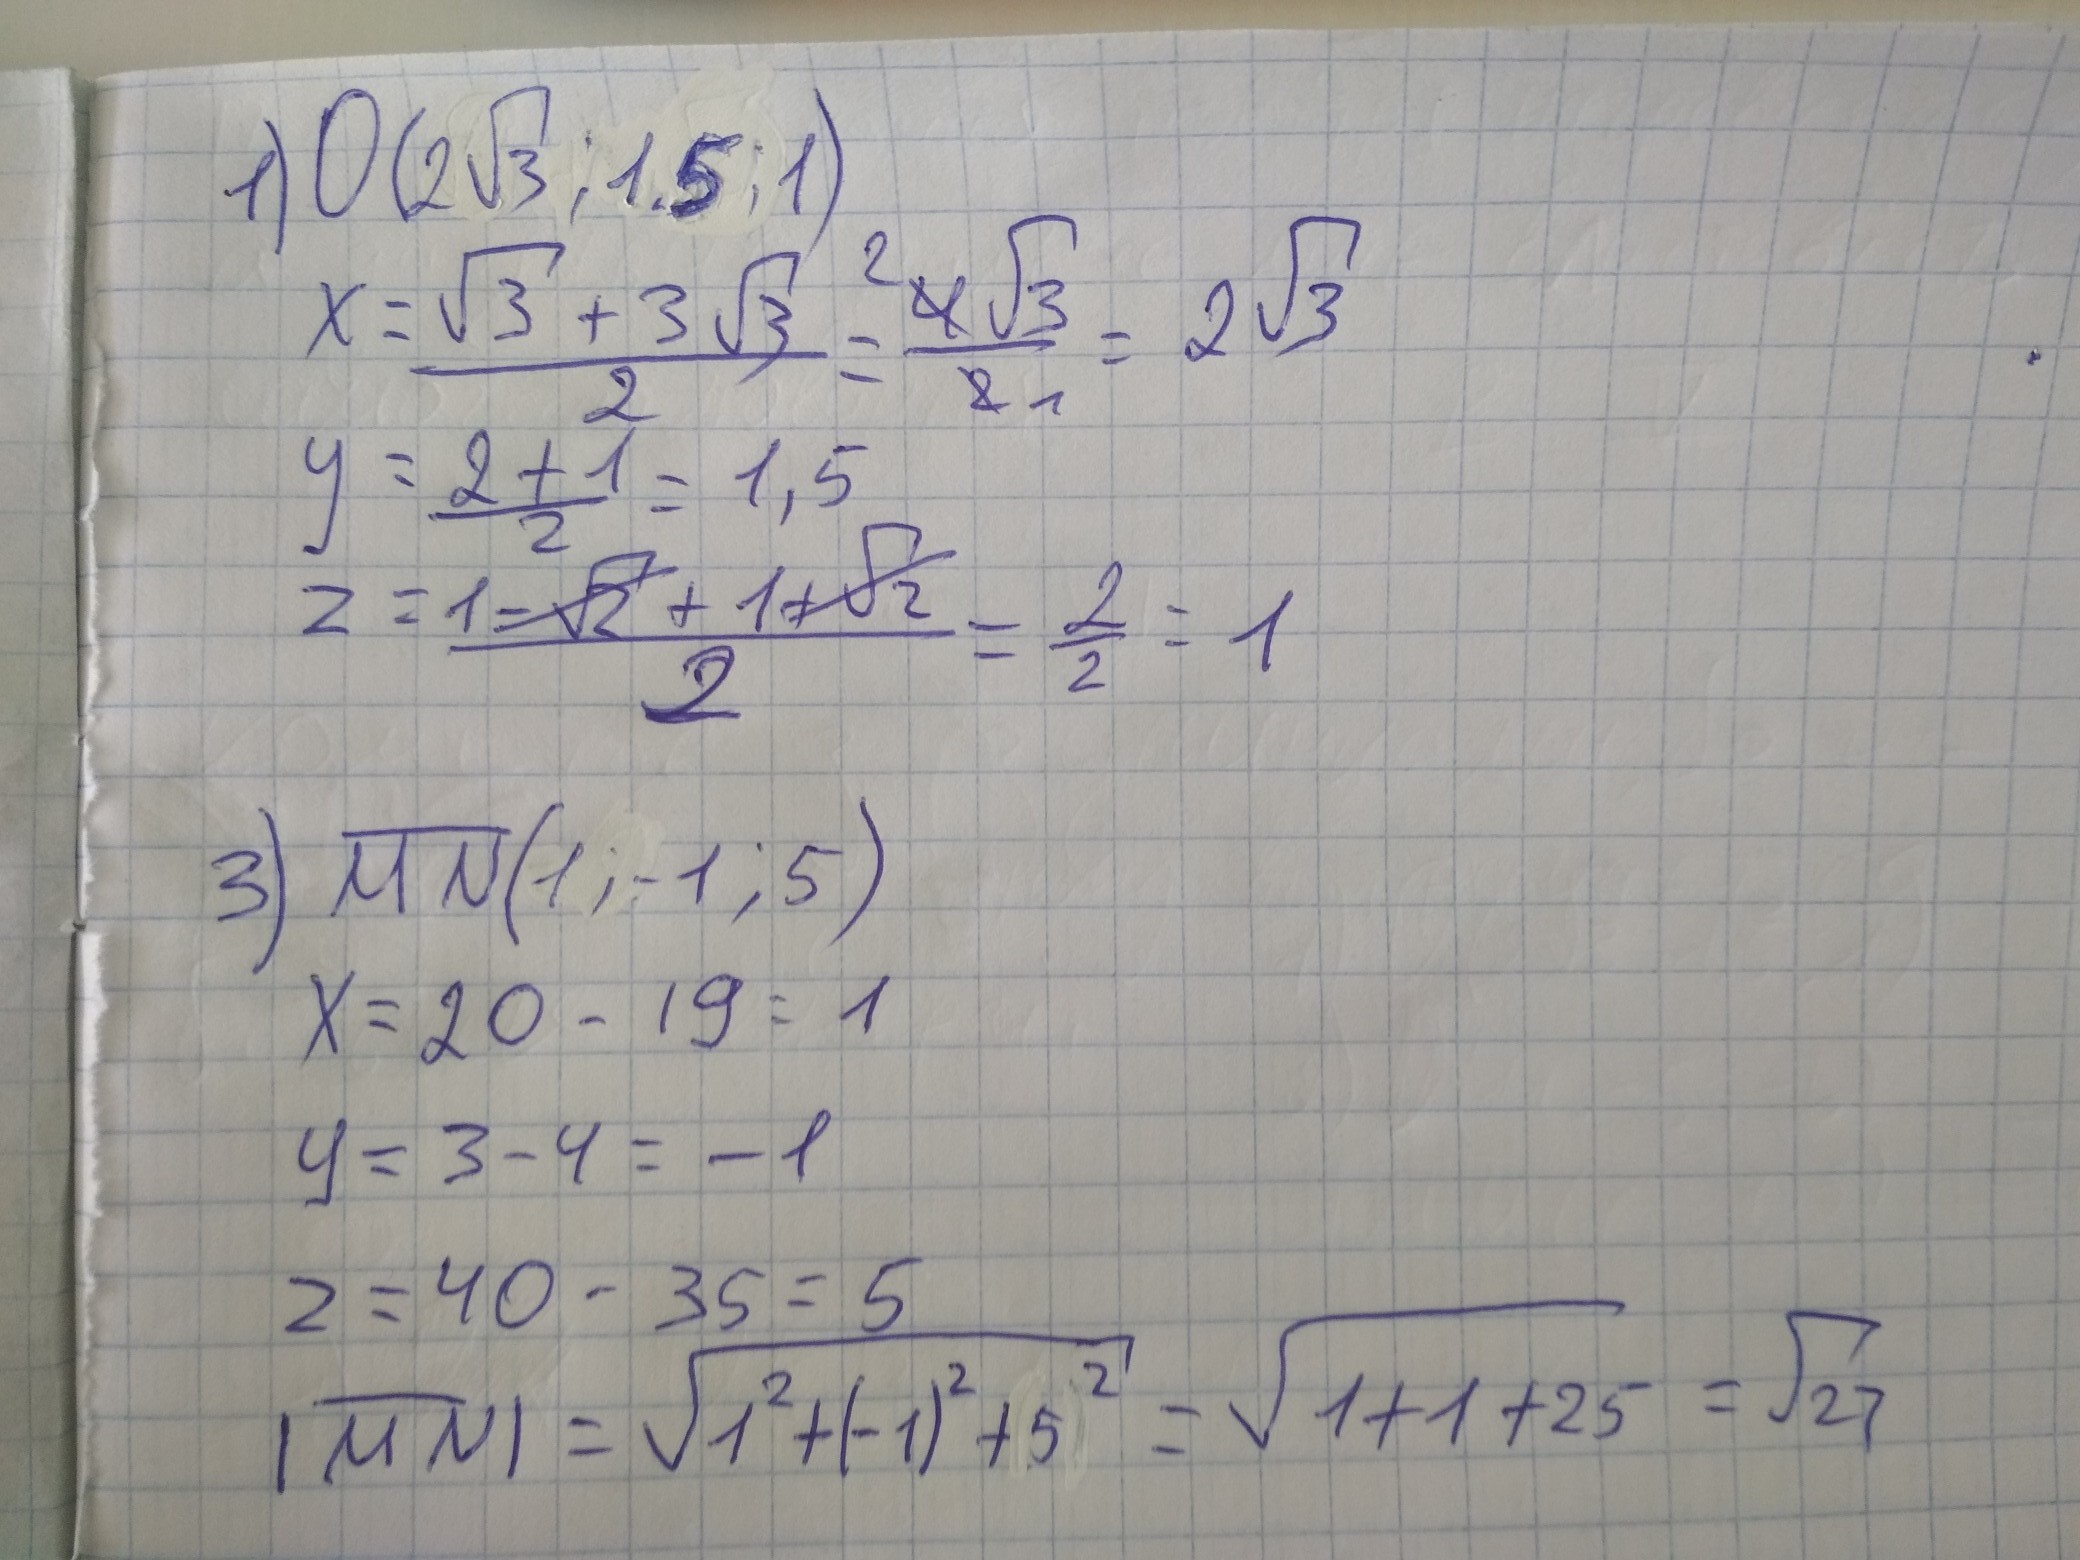 1) O(2√3; 1.5; 1)
x = (√3 + 3√3)/2 = ²4√3/2 1 = 2√3
y = (2+1)/2 = 1,5
z = (1-√2 + 1+√2)/2 = 2/2 = 1
3) MN(1; -1; 5)
x = 20 - 19 = 1
y = 3 - 4 = -1
z = 40 - 35 = 5
|MN| = √(1² + (-1)² + 5²) = √(1+1+25) = √27